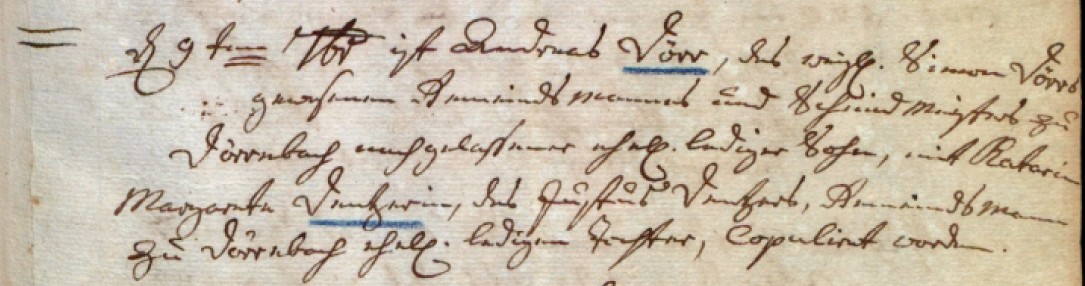 d. 9 ten 7br ist Andreas Dörr, des weyl. Simon Dörrs
gewesenen Gemeindsmannes und Schmidmeisters zu
Dörrenbach nachgelassener ehel. lediger Sohn, mit Katarin
Margareta Dentzerin, des Justus Dentzers, Gemeindsmann
zu Dörrenbach ehel. ledigen Tochter, Copulirt worden.